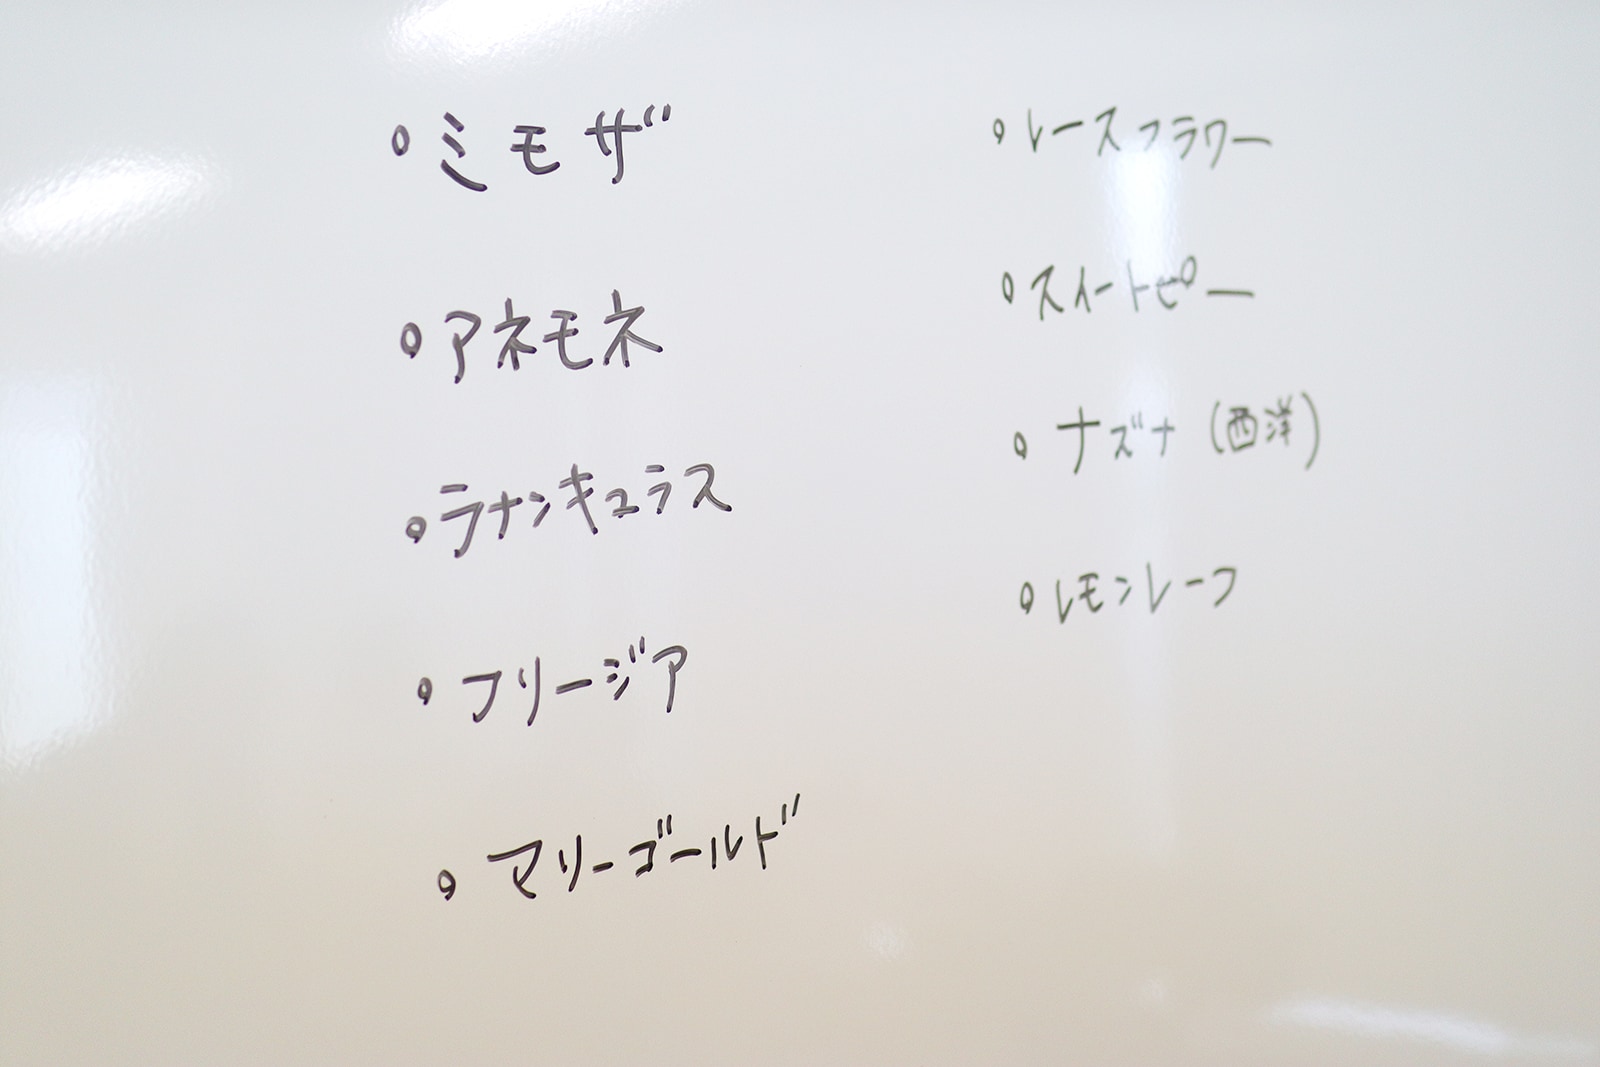 ○ミモザ
○アネモネ
○ラナンキュラス
○フリージア
○マリーゴールド
○レースフラワー
○スイートピー
○ナズナ(西洋)
○レモンリーフ